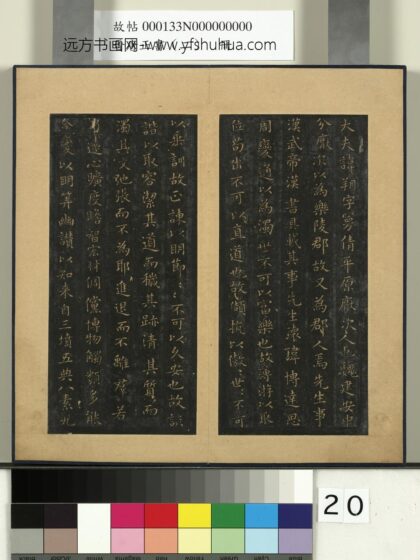 故帖 000133N000000000
远方书画网-www.yfshuhua.com
大夫諱朔字曼倩平原厭次人也魏建安中
分厭次以為樂陵郡故又為郡人焉先生事
漢武帝漢書具載其事先生瓌瑋博達思
周變通以為濁世不可以富樂也故薄遊以取
位苟出不可以直道也故頡抗以傲世〻不可
以垂訓故正諫以明節〻不可以久安也故詼
諧以取容潔其道而穢其跡清其質而
濁其文弛張而不為耶進退而不離群若
乃遠心曠度贍智宏材倜儻博物觸類多能
合變以明筭幽讚以知来自三墳五典八素九
20
Black
3/Color
White
Magenta
Red
Yellow
Green
Cyan
Blue